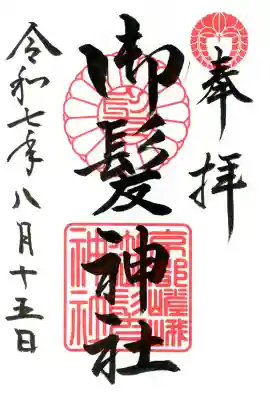 奉拝
御髪神社
令和七年八月十五日
京都嵯峨
御髪
神社